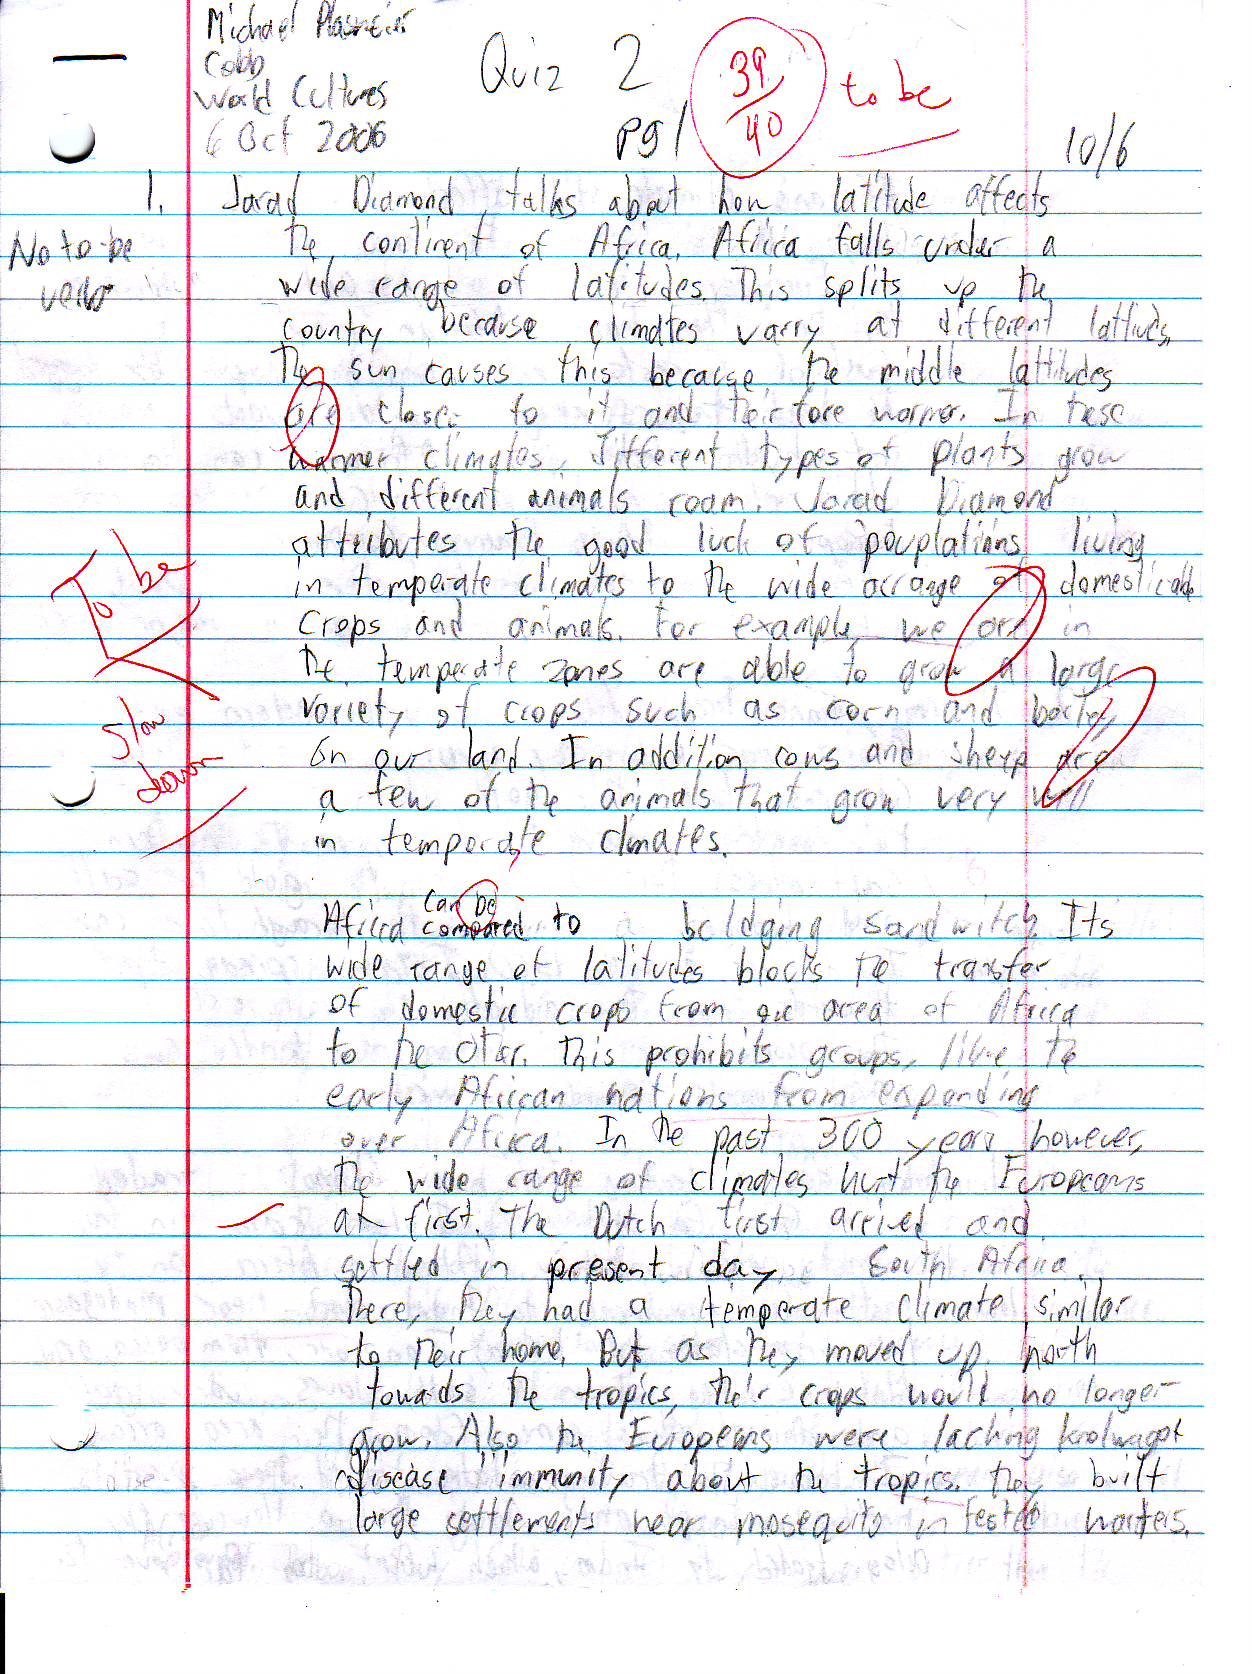 Michael Plasmeier
Cobb
World Cultures
6 Oct 2006
Quiz 2
pg 1
39/40
to be
10/6
No to-be
verbs
1. Jarad Diamond, talks about how latitude affects
the continent of Africa. Africa falls under a
wide range of latitudes. This splits up the
country because climates varry at different lattiudes.
The sun causes this because the middle lattitudes
are closer to it and theirfore warmer. In these
warmer climates, different types of plants grow
and different animals roam. Jarad Diamond
attributes the good luck of pouplatiins living
in temperate climates to the wide arrange of domesticable
Crops and animals. For example, we are in
the temperate zones are able to grow a large
variety of crops such as corn and barley,
on our land. In addition, cows and sheep are
a few of the animals that grow very well
in temperate climates.
To be
slow
down
Africa can be compared to a beldging sandwitch. Its
wide range of latitudes blocks the transfer
of domestic crops from one area of Africa
to the other. This prohibits groups, like the
early African nations from expanding
over Africa. In the past 300 years however,
the wide range of climates hurt the Europeans
at first. The Dutch first arrived and
settled in present day South Africa.
There, they had a temperate climate similar
to their home. But as they moved up north
towards the tropics, their crops would no longer
grow. Also the Europeans were lacking
disease immunity about the tropics. they built
large settlements near mosequito infested